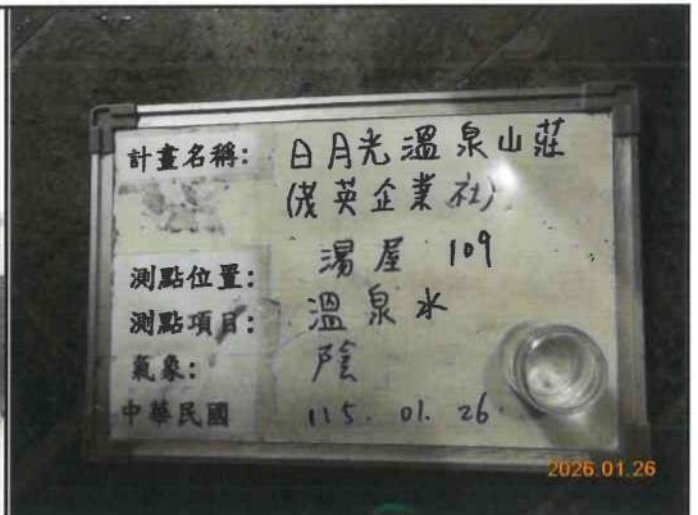 計畫名稱: 日月光溫泉山莊
(茂英企業社)
測點位置: 湯屋 109
測點項目: 溫泉水
氣象: 陰
中華民國 115. 01. 26.
2026.01.26